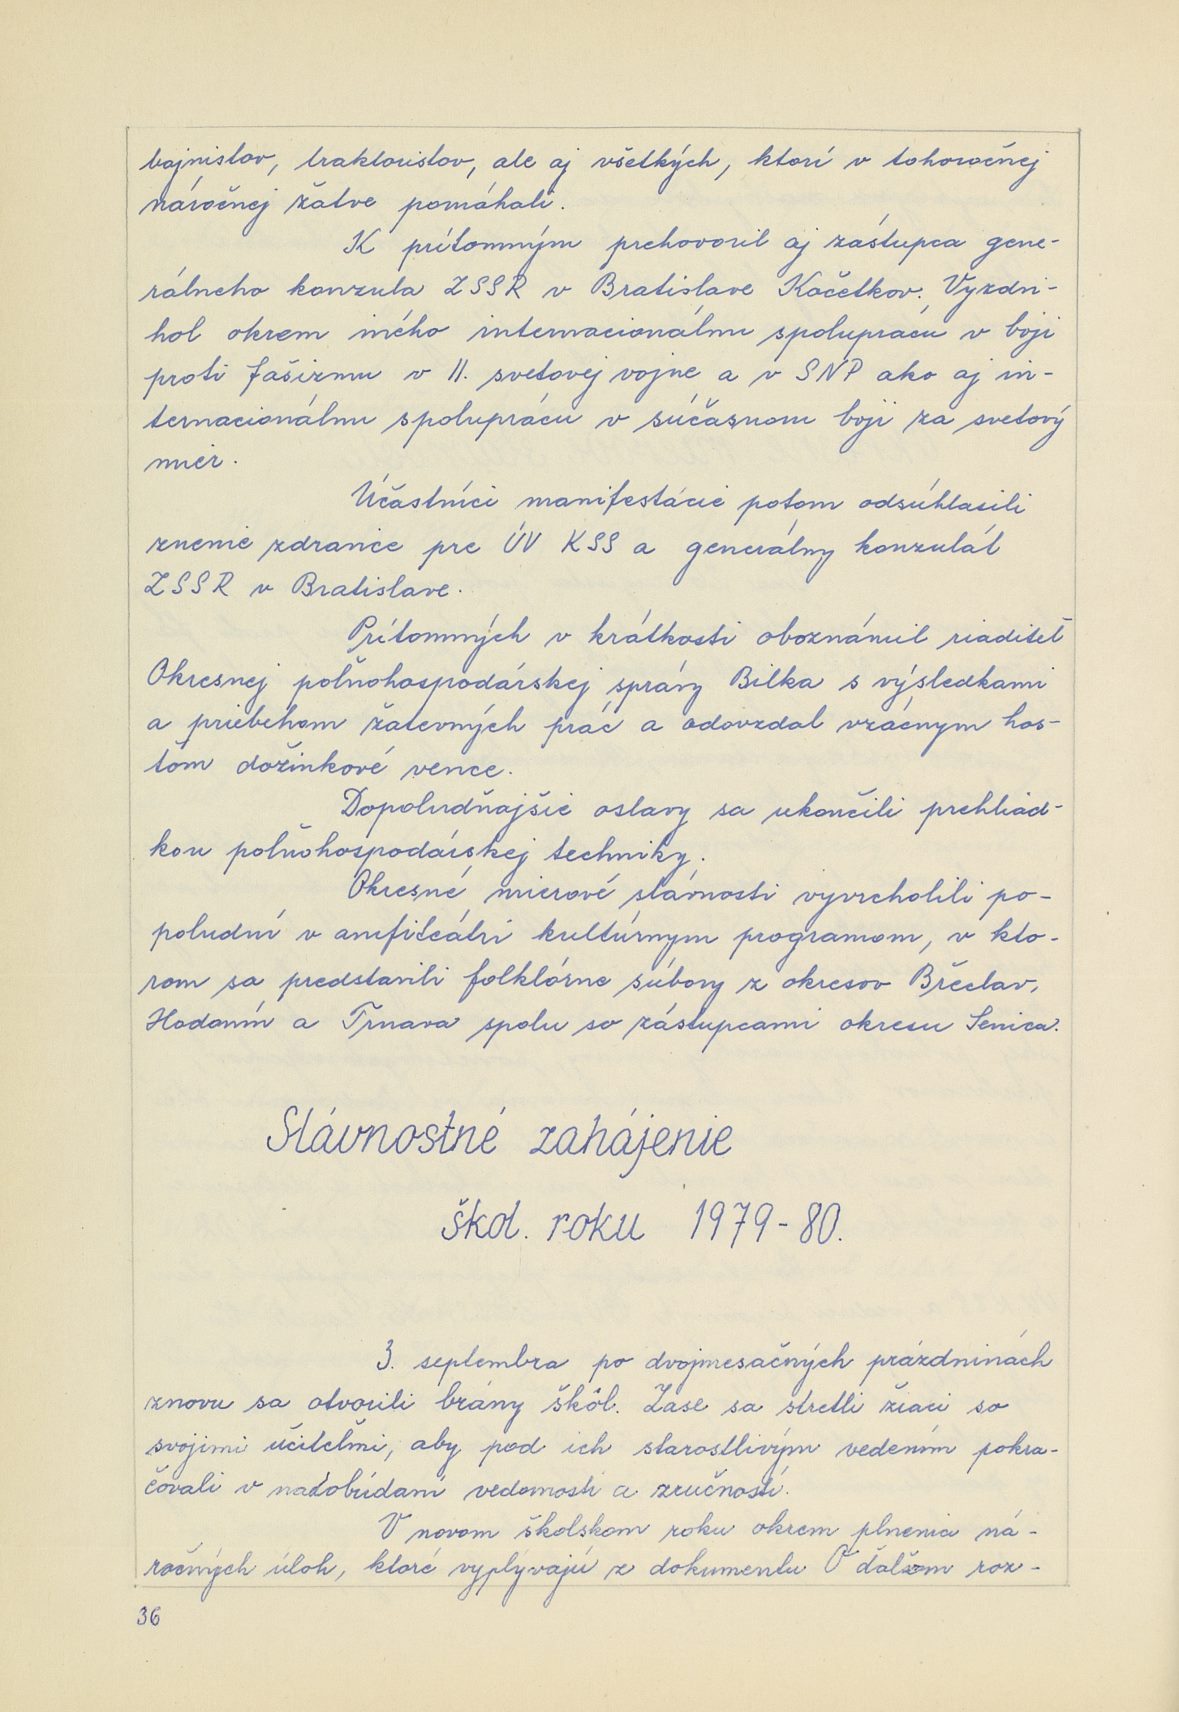 bajnistov, traktoristov, ale aj všetkých, ktorí v tohoročnej
náročnej žatve pomáhali.
K prítomným prehovoril aj zástupca gene-
rálneho konzula ZSSR v Bratislave Kočetkov. Vyzdvi-
hol okrem iného internacionálnu spoluprácu v boji
proti fašizmu v II. svetovej vojne a v SNP ako aj in-
ternacionálnu spoluprácu v súčasnom boji za svetový
mier.
Účastníci manifestácie potom odsúhlasili
znenie zdravice pre ÚV KSS a generálny konzulát
ZSSR v Bratislave.
Prítomných v krátkosti oboznámil riaditeľ
Okresnej poľnohospodárskej správy Bilka s výsledkami
a priebehom žatevných prác a odovzdal vzácnym hos-
ťom dožinkové vence.
Dopoludňajšie oslavy sa ukončili prehliad-
kou poľnohospodárskej techniky.
Okresné mierové slávnosti vyvrcholili po-
poludní v amfiteátri kultúrnym programom, v kto-
rom sa predstavili folklórne súbory z okresov Břeclav,
Hodonín a Trnava spolu so zástupcami okresu Senica.
Slávnostné zahájenie
škol. roku 1979-80.
3. septembra po dvojmesačných prázdninách
znovu sa otvorili brány škôl. Zase sa stretli žiaci so
svojimi učiteľmi, aby pod ich starostlivým vedením pokra-
čovali v nadobúdaní vedomostí a zručností.
V novom školskom roku okrem plnenia ná-
ročných úloh, ktoré vyplývajú z dokumentu O ďalšom roz-
36